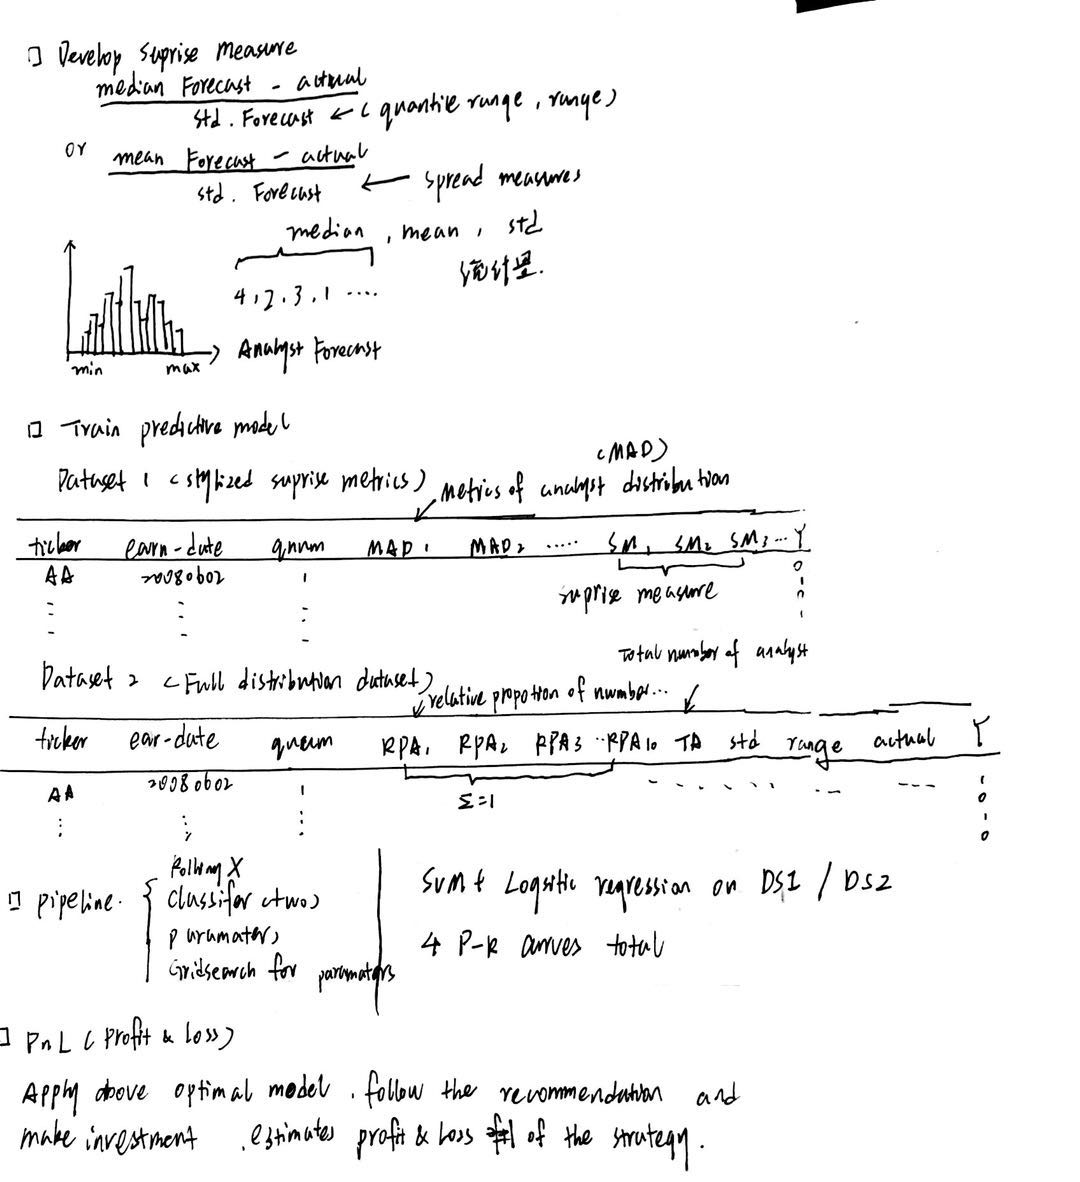 Develop Suprise Measure
median Forecast - actual
std. Forecast ← ( quantile range, range)
or mean Forecast - actual
std. Forecast ← spread measures
median, mean, std
统计量.
4, 2, 3, 1 ....
Analyst Forecast
min max
Train predictive model
(MAD)
Dataset 1 (stylized suprise metrics) Metrics of analyst distribution
ticker earn-date qnum MAD1 MAD2 ..... SM1 SM2 SM3 ... Y
AA 20080602 1 0
suprise measure
1
0
1
Total number of analyst
Dataset 2 (Full distribution dataset) relative propotion of number...
ticker ear-date qnum RPA1 RPA2 RPA3 ..RPA10 TA std range actual Y
AA 20080602 1 1
Σ=1
0
1
0
Rolling X
Pipeline. Classifer (two)
paramaters
Gridsearch for paramaters
SVM + Logsitic regression on DS1 / DS2
4 P-R curves total
PnL (Profit & loss)
Apply above optimal model, follow the recommendation and
make investment, estimates profit & loss of the strategy.